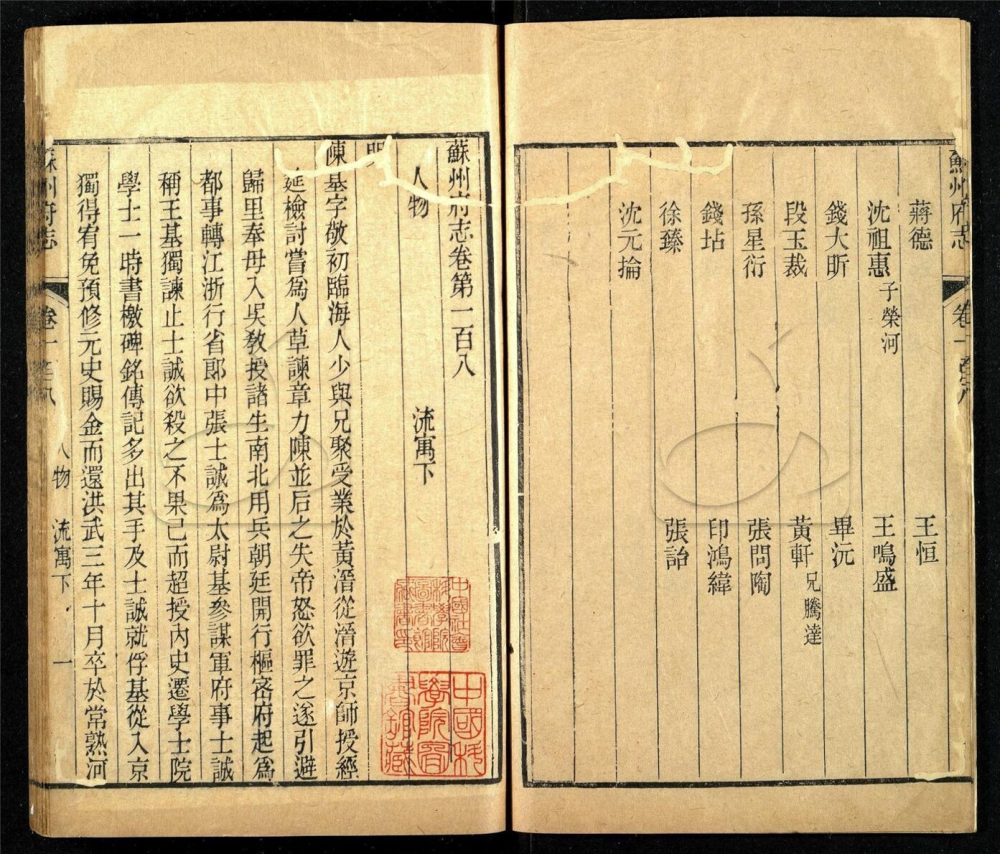 蘇州府志
卷一百八
蔣德
王恒
沈祖惠 子榮河
王鳴盛
錢大昕
畢沅
段玉裁
黃軒 兄騰達
孫星衍
張問陶
錢坫
印鴻緯
徐臻
張詒
沈元掄
蘇州府志卷第一百八
人物
流寓下
明
陳基字敬初臨海人少與兄聚受業於黃溍從溍遊京師授經
延檢討嘗爲人草諫章力陳並后之失帝怒欲罪之遂引避
歸里奉母入吳敎授諸生南北用兵朝廷開行樞密府起爲
都事轉江浙行省郎中張士誠爲太尉基參謀軍府事士誠
稱王基獨諫止士誠欲殺之不果已而超授內史遷學士院
學士一時書檄碑銘傳記多出其手及士誠就俘基從入京
獨得宥免預修元史賜金而還洪武三年十月卒於常熟河
蘇州府志
卷一百八
人物
流寓下
一
中國社會科學院
圖書館
藏書印
中國科
學院圖
書館藏